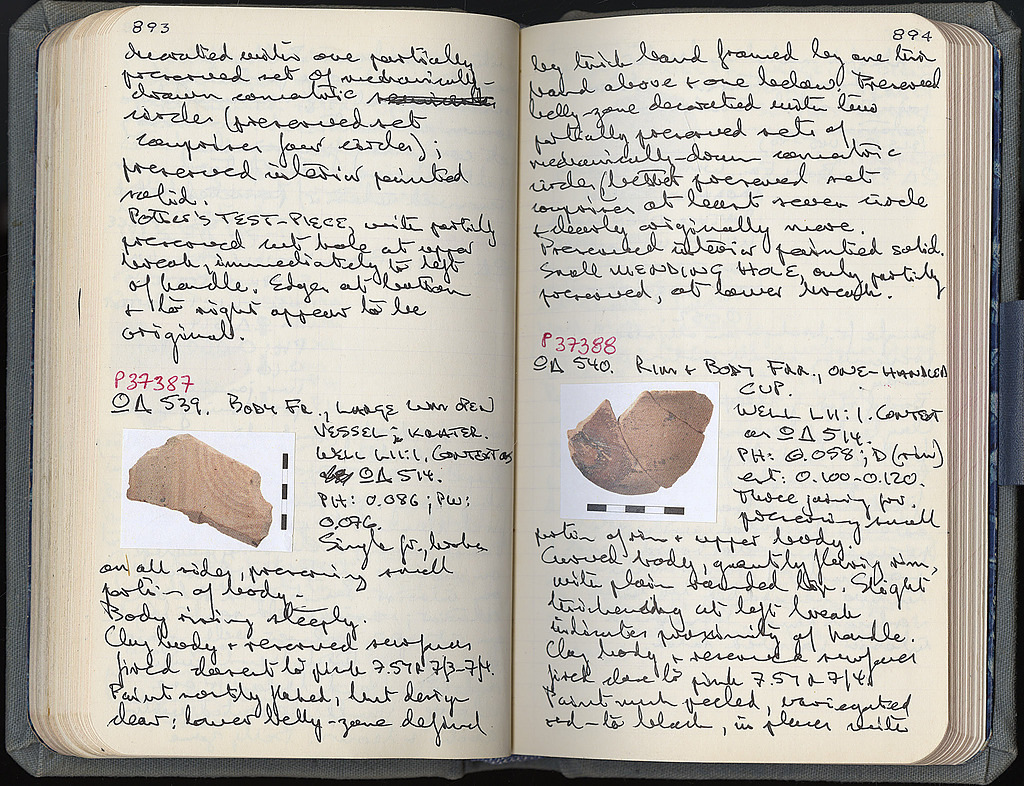 893
decorated with one partially
preserved set of mechanically-
drawn concentric
circles (preserved set
comprises four circles);
preserved interior painted
solid.
Potter's TEST-PIECE, with partially
preserved cut hole at upper
break, immediately to left
of handle. Edges at bottom
+ to right appear to be
original.
P37387
ΟΔ 539. BODY FR., LARGE OPEN
VESSEL: KRATER.
WELL L11:1. CONTEXT as
ΟΔ 514.
PH: 0.086; PW:
0.076.
Single fr., broken
on all sides, preserving small
portion of body.
Body rising steeply.
Clay body + reserved surfaces
fired closest to pink 7.5YR 7/3-7/4.
Paint mostly flaked, but design
clear; lower belly-zone defined
894
by thick band framed by one thin
band above + one below. Preserved
belly-zone decorated with two
partially preserved sets of
mechanically-drawn concentric
circles (better preserved set
comprises at least seven circles
+ clearly originally more.
Preserved interior painted solid.
Small MENDING HOLE, only partially
preserved, at lower break.
P37388
ΟΔ 540. RIM + BODY FRR., ONE-HANDLED
CUP.
WELL L11:1. CONTEXT
as ΟΔ 514.
PH: 0.058; D (rim)
est: 0.100-0.120.
Three joining frr.
preserving small
portion of rim + upper body.
Curved body, gently flaring rim,
with plain rounded lip. Slight
thickening at left break
indicates proximity of handle.
Clay body + reserved surfaces
fired close to pink 7.5YR 7/4.
Paint much peeled, variegated
red-to black, in places with